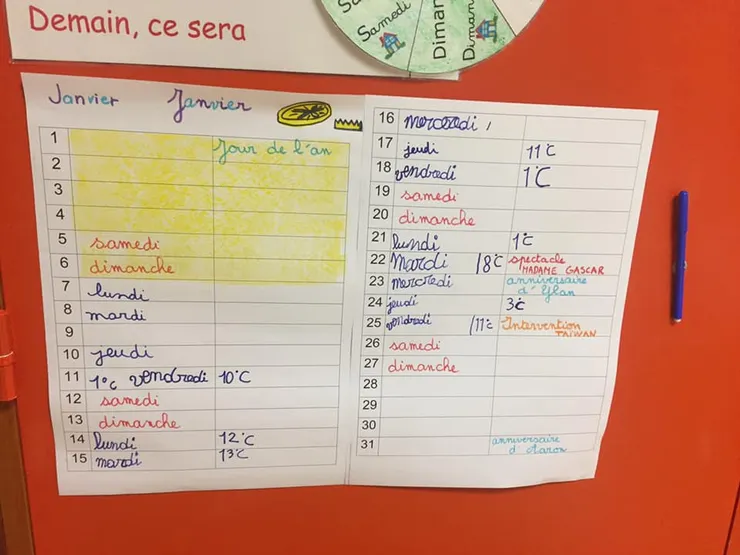 Demain, ce sera
Samedi
Diman
Diman
Janvier Janvier
1 Jour de l'an
2
3
4
5 samedi
6 dimanche
7 lundi
8 mardi
9
10 jeudi
11 1°C vendredi 10°C
12 samedi
13 dimanche
14 lundi 12°C
15 mardi 13°C
16 mercredi
17 jeudi 11°C
18 vendredi 1°C
19 samedi
20 dimanche
21 lundi 1°C
22 Mardi 18°C spectacle
MADAME GASCAR
23 mercredi anniversaire
d'Ylan
24 jeudi 3°C
25 vendredi 11°C Intervention
TAIWAN
26 samedi
27 dimanche
28
29
30
31 anniversaire
d'Aaron